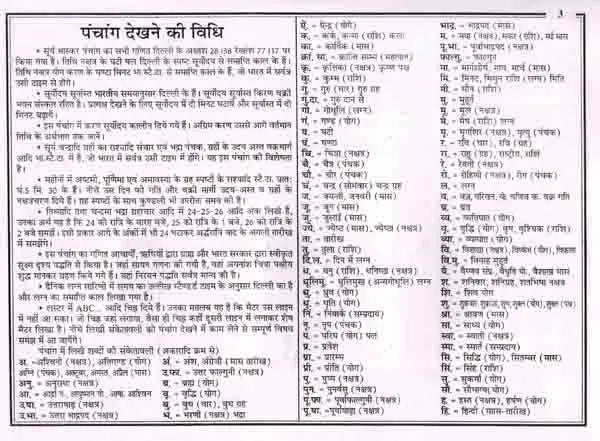 3
पंचांग देखने की विधि
• सूर्य भास्कर पंचांग का सभी गणित दिल्ली के अक्षांश 28।38 रेखांश 77।17 पर
किया गया है। तिथि नक्षत्र के घटी पल दिल्ली के स्पष्ट सूर्योदय से समाप्ति काल के हैं।
तिथि नक्षत्र योग करण के घण्टा मिनट भा.स्टै.टा. से समाप्ति काल के हैं, जो भारत में सर्वत्र
उसी टाइम से होंगे।
• सूर्योदय सूर्यास्त भारतीय समयानुसार दिल्ली के हैं। सूर्योदय सूर्यास्त किरण वक्री
भवन संस्कार रहित है। प्रत्यक्ष देखने के लिए सूर्योदय में दो मिनट घटायें और सूर्यास्त में दो
मिनट बढ़ायें।
• इस पंचांग में करण सूर्योदय कालीन दिये गये हैं। अग्रिम करण उससे आगे वर्तमान
तिथि के अर्धभाग तक जानें।
• सूर्य चन्द्रादि ग्रहों का राश्यादि संचार एवं भद्रा पंचक, ग्रहों के उदय अस्त वक्रमार्ग
आदि भा.स्टै.टा. में हैं, जो भारत में सर्वत्र उसी टाइम में होंगे। यह इस पंचांग की विशेषता
है।
• महीनों में अष्टमी, पूर्णिमा एवं अमावस्या के ग्रह स्पष्ट के राश्यादि स्टै.टा. प्रातः
घं.5 मि. 30 के हैं। नीचे उस दिन की गति और वक्री मार्गी उदय-अस्त व ग्रहों के
नक्षत्रचरण दिये हैं। ग्रह स्पष्ट के साथ कुण्डली भी उपरोक्त समय की है।
• तिथ्यादि तथा चन्द्रमा भद्रा ग्रहाचार आदि में 24-25-26 आदि अंक लिखे हैं,
उनका अर्थ यह है कि 24 को रात्रि के बारह बजे, 25 को रात्रि के 1 बजे, 26 को रात्रि के
2 बजे समझें। इसी प्रकार आगे के अंकों में भी 24 घटाकर अर्द्धरात्रि बाद के अगली तारीख
में समझेंगे।
• इस पंचांग का गणित आचार्यों, ऋषियों द्वारा ग्राह्य और भारत सरकार द्वारा स्वीकृत
सूक्ष्म दृश्य पद्धति से किया है। जहां सायन गणना की गयी है, वहां अयनांश चित्रा पक्षीय
शुद्ध मानकर ग्रहण किये गये हैं। यही निरयन पद्धति सर्वत्र मान्य की है।
• दैनिक लग्न सारिणी में समय का उल्लेख स्टैण्डर्ड टाइम के अनुसार दिल्ली का है
और लग्न का समाप्ति काल लिखा गया है।
• लास्टर में ABC... आदि चिह्न दिये हैं। उनका मतलब यह है कि मैटर उस लाइन
में नहीं आ सका। जो चिह्न जहां लगाया, वैसा ही चिह्न कहीं दूसरी लाइन में लगाकर शेष
मैटर लिखा है। नीचे लिखी संकेतावली को पंचांग देखने में काम लेने से सम्पूर्ण विषय
समझ में आ जायेंगे।
पंचांग में लिखे शब्दों की संकेतावली (अकारादि क्रम से)
अ.=अश्विनी (नक्षत्र), अतिगण्ड (योग)
अग्नि (पंचक, अमृता, अगस्त, अप्रैल (मास)
अनु.=अनुराधा (नक्षत्र)
आ.=आर्द्रा न., आयुष्मान यो., आषा. आश्विन
उ.षा.= उत्तराषाढ़ (नक्षत्र)
उ.भा.= उत्तरा भाद्रपद (नक्षत्र)
अं.= अंश, अंग्रेजी (मास तारीख)
उ.फा.= उत्तर फाल्गुनी (नक्षत्र)
ब्र.= ब्राह्म (योग)
वृ.= वृद्धि (योग)
बु.= बुध (वार), बुध ग्रह
भ.= भरणी (नक्षत्र) भद्रा
ऐं.= ऐन्द्र (योग)
क.= कर्क, कन्या (राशि) करण
का.= कार्तिक (मास)
क्रां.सा.= क्रान्ति साम्य (महापात)
कृ.= कृत्तिका (नक्षत्र), कृष्ण पक्ष
कु.= कुम्भ (राशि)
गु.= गुरु (वार) ग्रह
गु.दा.= गुरु दान से
गो.= गोधूलि (लग्न)
गं.= गण्ड (योग)
घ.= घटी
घं.= घण्टा
चि.= चित्रा (नक्षत्र)
चै.= चैत्र (पंचक)
चौ.= चौर (पंचक)
चं.= चन्द्र (सोमवार) चन्द्र ग्रह
ज.= जयन्ती, जनवरी (मास)
जू.= जून (मास)
जु.= जुलाई (मास)
ज्ये.= ज्येष्ठ (मास) (नक्षत्र)
ता.= तारीख
तु.= तुला (राशि)
दि.ल.= दिन में लग्न
ध.= धनु (राशि), धनिष्ठा (नक्षत्र)
धूलिमु.= धूलिमुख (अन्धगोधूलि) लग्न
ध्रु.= ध्रुव (योग)
धृ.= धृति (योग)
निं.= निम्बार्क (सम्प्रदाय)
नृ.= नृप (पंचक)
प.= परिघ (योग) पल
प्र.= प्रवेश
प्रा.= प्रारम्भ
प्री.= प्रीति (योग)
पु.= पुष्य (नक्षत्र)
पुन.= पुनर्वसु (नक्षत्र)
पू.फा.= पूर्वाफाल्गुनी (नक्षत्र)
पू.षा.= पूर्वाषाढ़ा (नक्षत्र)
भाद्र.= भाद्रपद (मास)
म.= मघा (नक्षत्र), मकर (राशि), मई मास
पू.भा.= पूर्वाभाद्रपद (नक्षत्र)
फाल्गु.= फाल्गुन
मा.= मार्गशीर्ष, माघ, मार्च (मास)
मि.= मिनट, मिथुन (राशि) (लग्न) मिति
मी.= मीन (राशि)
मु.= मुहूर्त
मू.= मूल (नक्षत्र)
मे.= मेष (राशि) लग्न
मृ.= मृगशिर (नक्षत्र), मृत्यु (पंचक)
र.= रवि (वार) ग्रह
रा.= राहु (ग्रह), राष्ट्रीय, राशि
रे.= रेवती (नक्षत्र)
रो.= रोहिणी (नक्षत्र), रोग (पंचक)
ल.= लग्न
व्य.= व्यतिपात (योग)
वृ.= वृद्धि (योग) वृष, वृश्चिक (राशि)
व्या.= व्याघात (योग)
वि.मु.= विवाह मुहूर्त
श.= शनिवार, शनिग्रह, शतभिषा नक्षत्र
शि.= शिव योग
श्रा.= श्रावण (मास)
सा.= साध्य (योग)
स्वा.= स्वाती (नक्षत्र)
स्मा.= स्मार्त (सम्प्रदाय)
सि.= सिद्धि (योग), सितम्बर (मास)
सिं.= सिंह (राशि)
सु.= सुकर्मा (योग)
सौ.= सौभाग्य (योग)
ह.= हस्त (नक्षत्र), हर्षण (योग)
हि.= हिन्दी (मास-तारीख)